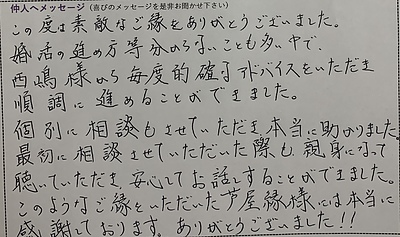 仲人へメッセージ（喜びのメッセージを是非お聞かせ下さい）
この度は素敵なご縁をありがとうございました。
婚活の進め方等分からないことも多い中で、
西嶋様から毎度的確なアドバイスをいただき
順調に進めることができました。
個別に相談もさせていただき、本当に助かりました。
最初に相談させていただいた際も、親身になって
聴いていただき、安心してお話しすることができました。
このようなご縁をいただいた芦屋縁様には本当に
感謝しております。ありがとうございました!!